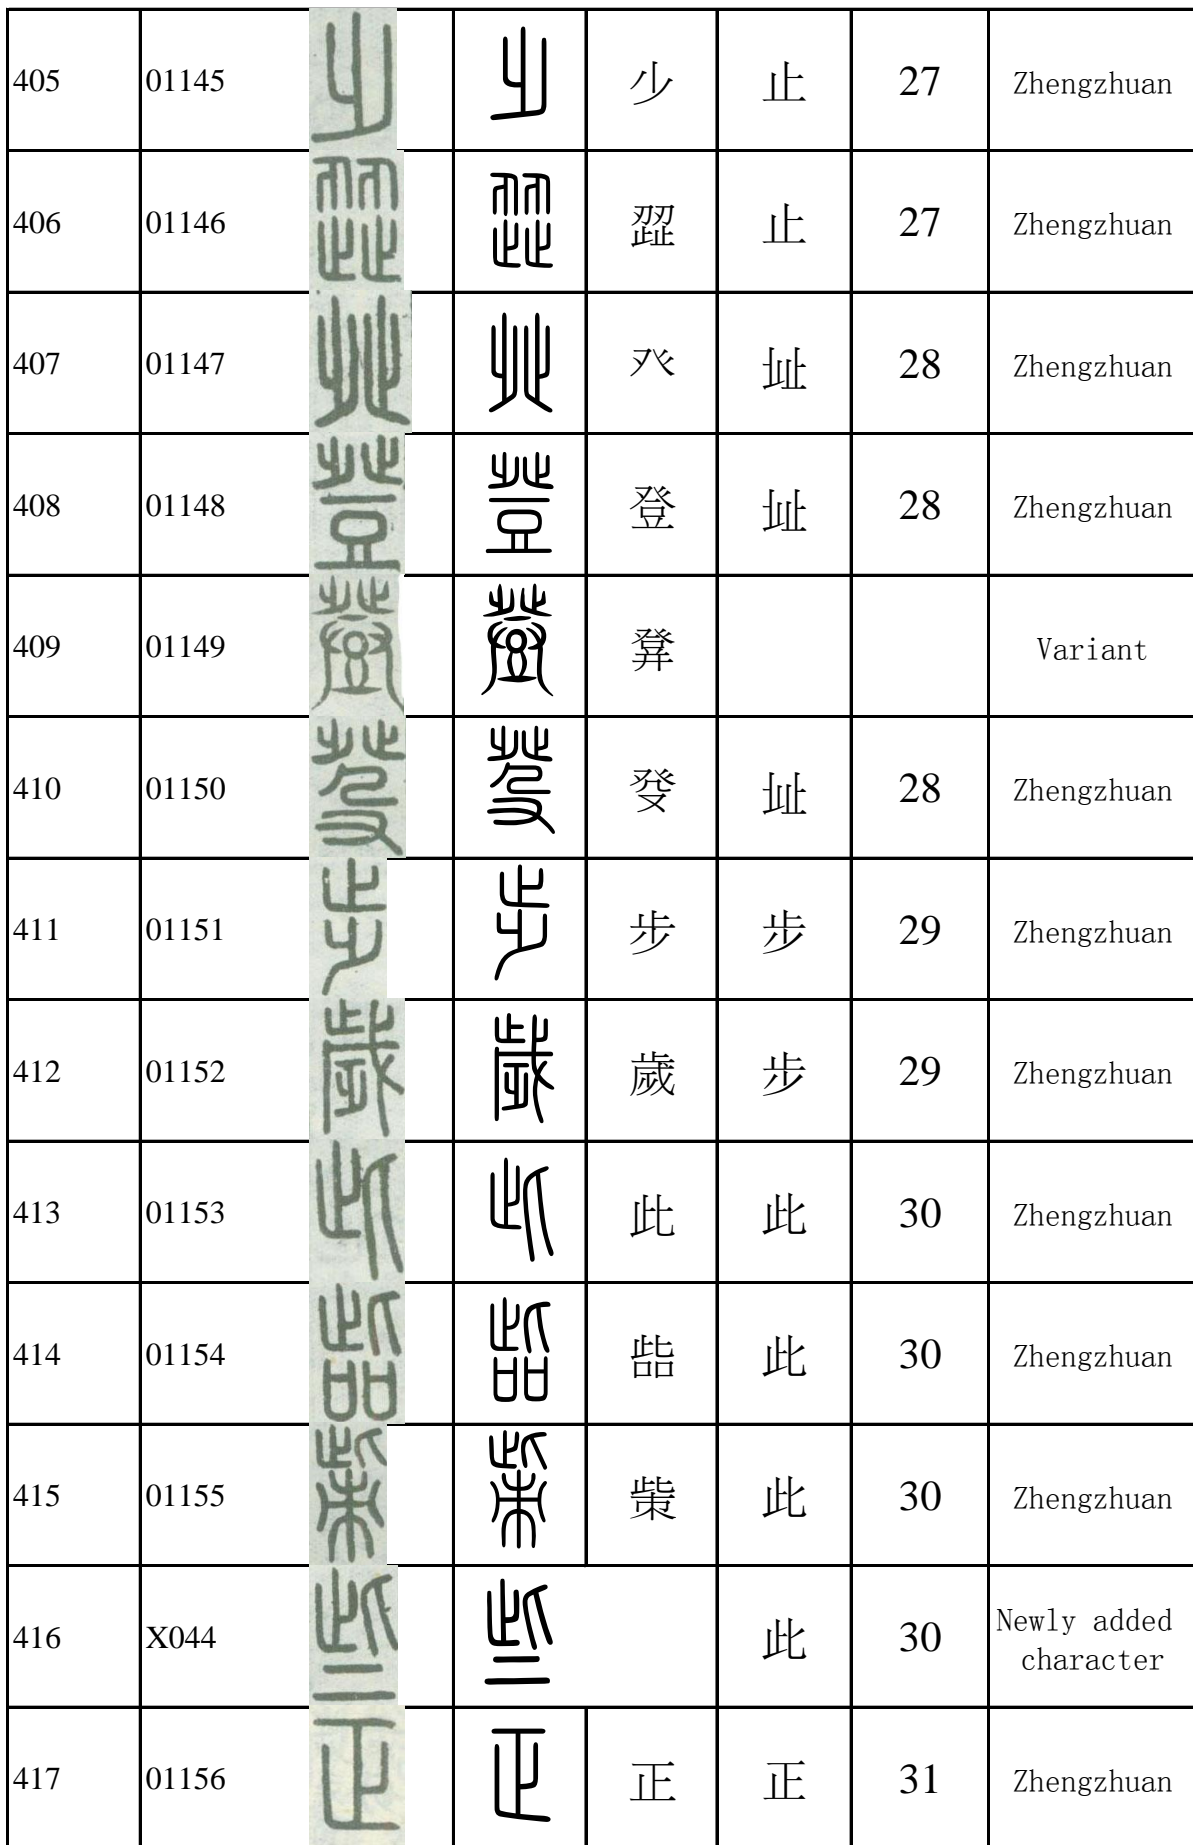 405 01145 少 止 27 Zhengzhuan
406 01146 歰 止 27 Zhengzhuan
407 01147 癶 址 28 Zhengzhuan
408 01148 登 址 28 Zhengzhuan
409 01149 Variant
410 01150 癹 址 28 Zhengzhuan
411 01151 步 步 29 Zhengzhuan
412 01152 歲 步 29 Zhengzhuan
413 01153 此 此 30 Zhengzhuan
414 01154 啙 此 30 Zhengzhuan
415 01155 㭰 此 30 Zhengzhuan
416 X044 此 30 Newly added
character
417 01156 正 正 31 Zhengzhuan